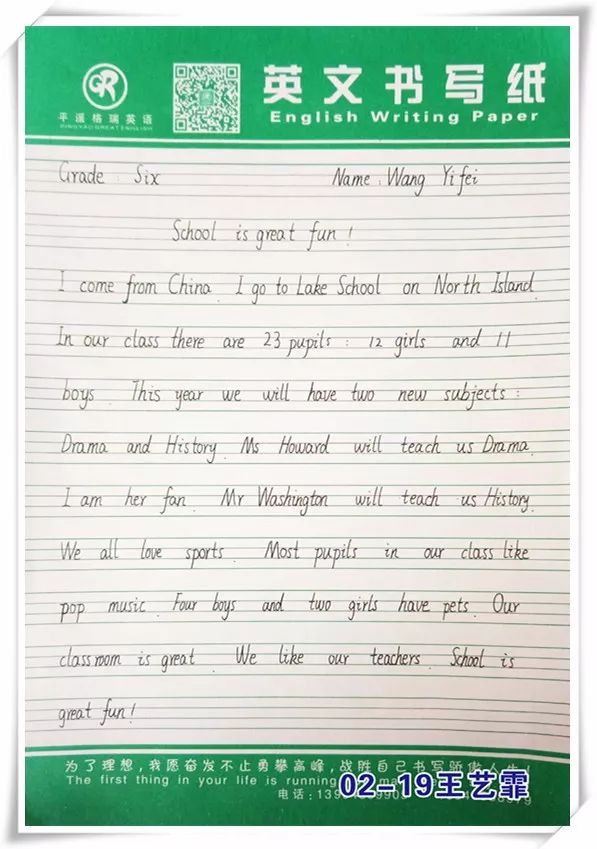 平遥格瑞英语
PINGYAO GREAT ENGLISH
英文书写纸
English Writing Paper
Grade : Six Name : Wang Yifei
School is great fun !
I come from China. I go to Lake School on North Island.
In our class there are 23 pupils : 12 girls and 11
boys. This year we will have two new subjects :
Drama and History. Ms Howard will teach us Drama.
I am her fan. Mr Washington will teach us History.
We all love sports. Most pupils in our class like
pop music. Four boys and two girls have pets. Our
classroom is great. We like our teachers. School is
great fun !
为了理想，我愿奋发不止勇攀高峰，战胜自己书写骄傲人生！
The first thing in your life is running
电话：
02-19王艺霏